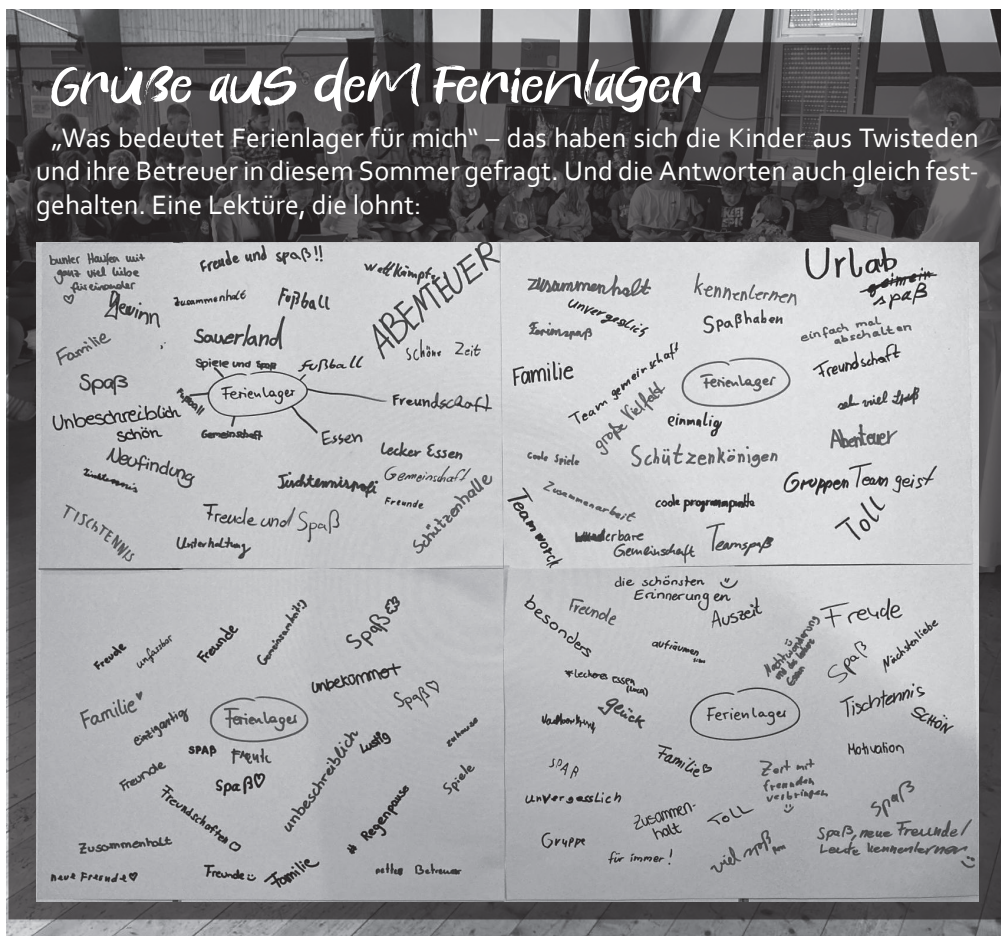 Grüße aus dem Ferienlager
„Was bedeutet Ferienlager für mich“ – das haben sich die Kinder aus Twisteden
und ihre Betreuer in diesem Sommer gefragt. Und die Antworten auch gleich fest-
gehalten. Eine Lektüre, die lohnt:
bunter Haufen mit
ganz viel Liebe
füreinander
Freude und Spaß!!
Wettkämpfe
ABENTEUER
Gewinn
Zusammenhalt
Fußball
Familie
Sauerland
Schöne Zeit
Spiele und Spaß
Fußball
Spaß
Fußball
Ferienlager
Freundschaft
Unbeschreiblich
schön
Gemeinschaft
Essen
Lecker Essen
Neufindung
Tischtennisprofi
Gemeinschaft
Freunde
Schützenhalle
TISCHTENNIS
Freude und Spaß
Unterhaltung
Urlab
spaß
Zusammenhalt
kennenlernen
unvergeslich
Ferienspaß
Spaßhaben
einfach mal
abschalten
Familie
Team gemeinschaft
Ferienlager
Freundschaft
große Vielfalt
einmalig
seh viel Spaß
Abenteuer
coole Spiele
Schützenkönigen
Gruppen Team geist
Zusammenarbeit
coole programmpunkte
Toll
Teamworck
wunderbare
Gemeinschaft
Teamspaß
Freude
unfassbar
Freunde
Spaß
unbekommert
Familie
Spaß
einzigartig
Ferienlager
SPAß
Freude
Lustig
zuhause
Freunde
Spaß
unbeschreiblich
Spiele
Freundschaften
# Regenpause
Zusammenhalt
neue Freunde
Freunde
Familie
nette Betreuer
die schönsten
Erinnerungen
besonders
Freunde
Auszeit
Freude
aufräumen
Nachtwanderung
und das leckere
Essen
Spaß
Nächstenliebe
#leckeres Essen
glück
Ferienlager
Tischtennis
SCHÖN
Familie
Motivation
SPAß
Zeit mit
freunden
verbringen
unvergesslich
Zusammen-
halt
TOLL
Spaß
Gruppe
für immer!
viel spaß
Spaß, neue Freunde/
Leute kennenlernen